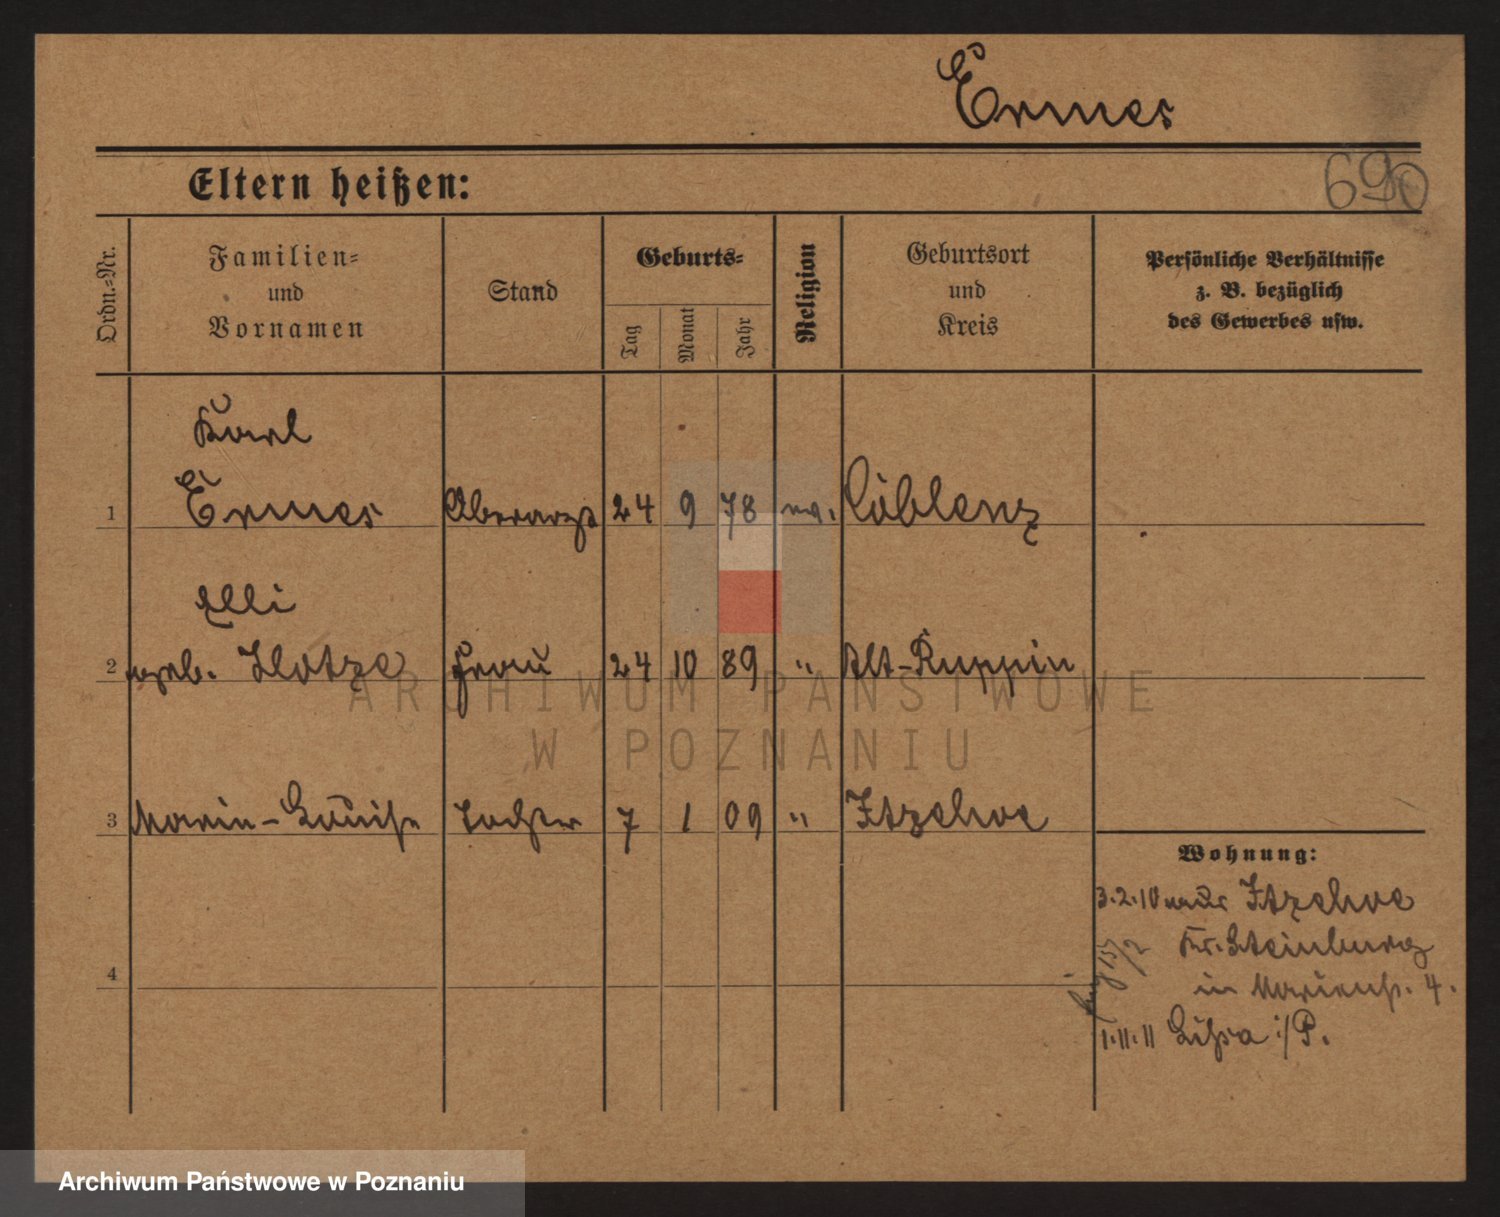 Ermes
690
Eltern heißen:
Ordn.-Nr.
Familien-
und
Vornamen
Stand
Geburts-
Tag
Monat
Jahr
Religion
Geburtsort
und
Kreis
Persönliche Verhältnisse
z. B. bezüglich
des Gewerbes usw.
Karl
1 Ermes Oberarzt 24 9 78 ev. Coblenz
Elli
2 geb. Klotze Frau 24 10 89 " Alt-Ruppin
3 Marie-Louise Tochter 7 1 09 " Itzehoe
Wohnung:
3.2.10 aus Itzehoe
Kr. Steinburg
in Marienstr. 4.
15/2
1.11.11 Lissa i/P.
4
ARCHIWUM PAŃSTWOWE
W POZNANIU
Archiwum Państwowe w Poznaniu